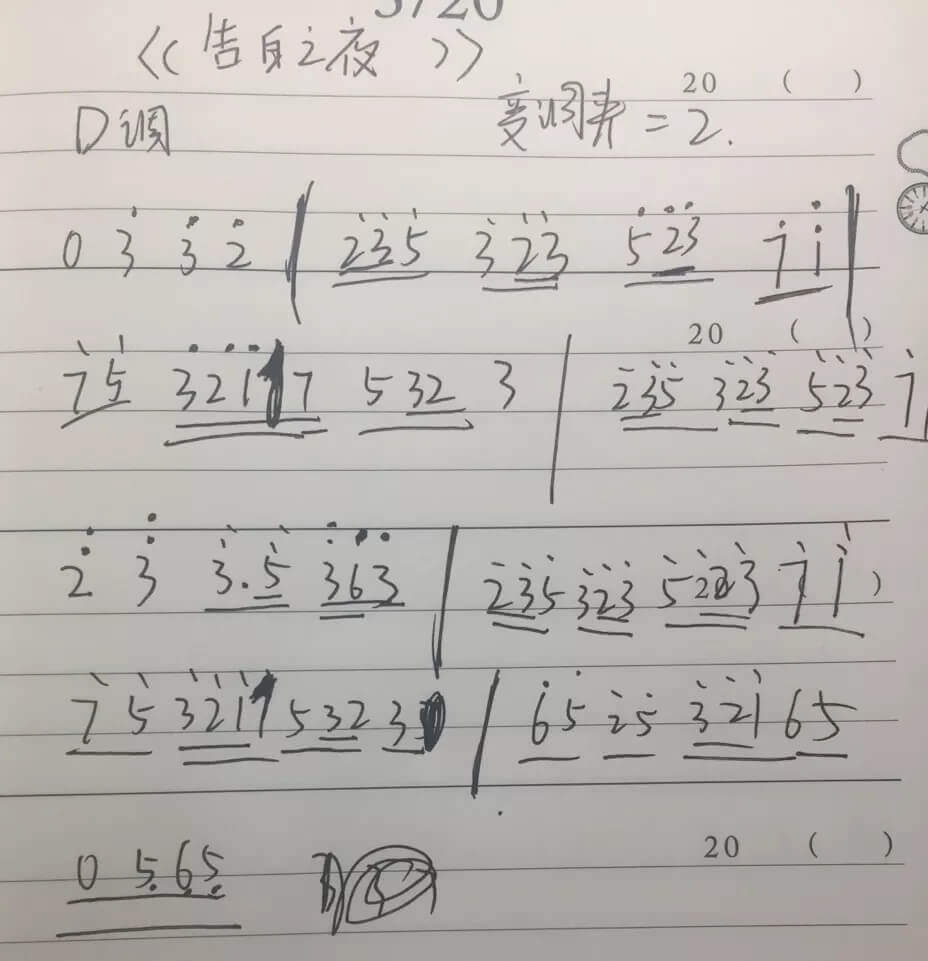 《告白之夜》
20 ( )
D调 变调夹=2.
0 3̇ 3̇ 2̇ | 2̇3̇5̇ 3̇2̇3̇ 5̇2̇3̇ 7̇ i̇ |
20 ( )
7̇5̇ 3̇2̇1̇7 532 3 | 2̇3̇5̇ 3̇2̇3̇ 5̇2̇3̇ 7̇
2̇ 3̇ 3̇.5̇ 3̇6̇3̇ | 2̇3̇5̇ 3̇2̇3̇ 5̇2̇3̇ 7̇ 1̇ )
7̇ 5̇ 3̇2̇1̇ 532 3 | 6̇5̇ 2̇5̇ 3̇2̇1̇ 65
20 ( )
0 5̣6̣5̣